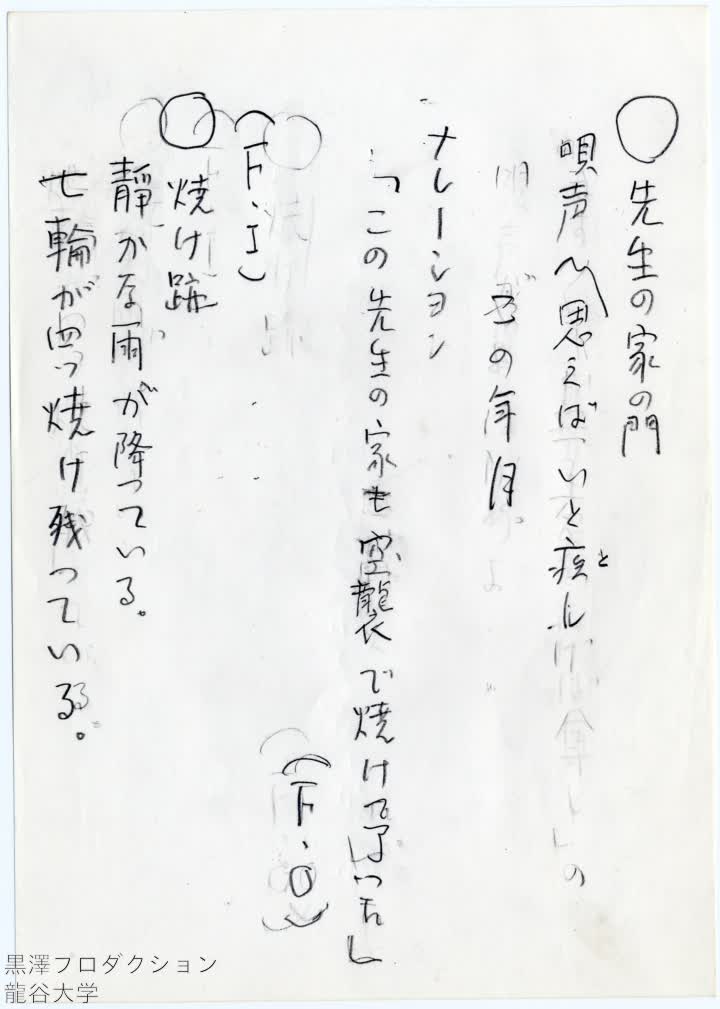 ○先生の家の門
唄声〽思えばいと疾し
この年月
ナレーション
「この先生の家も空襲で焼け
(F、O)
(F、I)
○焼け跡
静かな雨が降っている。
七輪が四つ焼け残っている。
黒澤プロダクション
龍谷大学